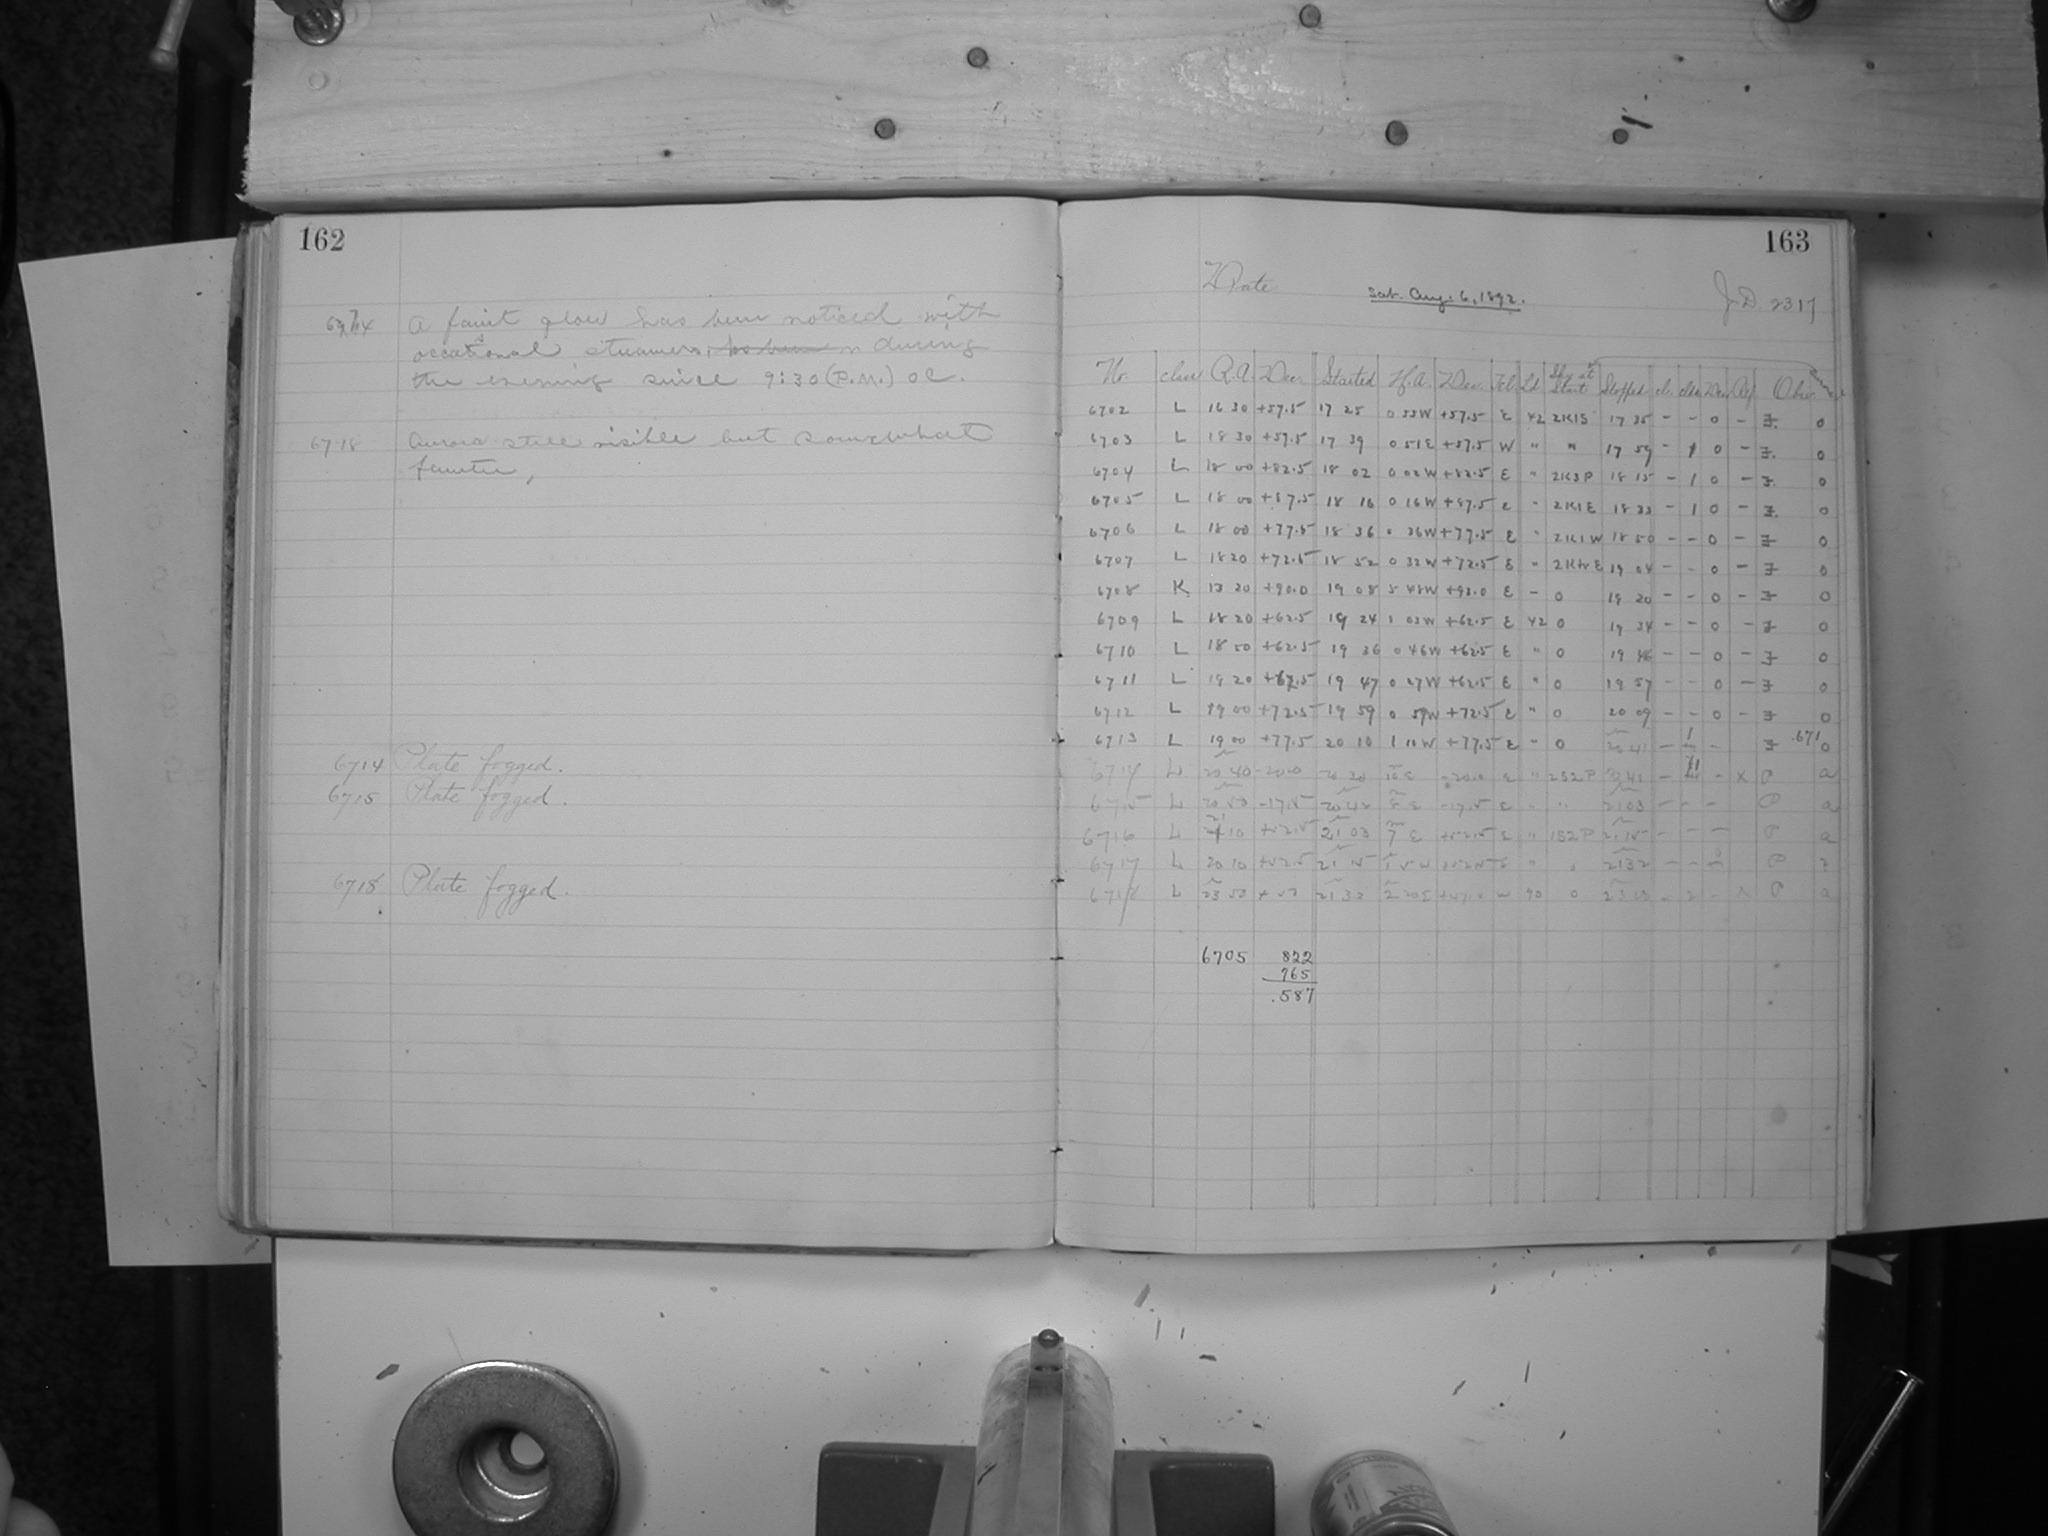 162
6714 A faint glow has been noticed with
occasional streamers, has been in during
the evening since 9:30 (P.M.) oc.
6718 Aurora still visible but somewhat
fainter,
6714 Plate fogged.
6715 Plate fogged.
6718 Plate fogged.
163
Date Sat. Aug. 6, 1892. J.D. 2317
Nr. class R.A. Dec. Started H.A. Dec. Tel. Ld Sky at Start Stopped cl. Obs.
6702 L 16 30 +57.5 17 25 0 53W +57.5 E 42 2K1S 17 35 - - 0 - F. 0
6703 L 18 30 +57.5 17 39 0 51E +57.5 W " " 17 59 - 1 0 - F. 0
6704 L 18 00 +82.5 18 02 0 02W +82.5 E " 2K3P 18 15 - 1 0 - F. 0
6705 L 18 00 +87.5 18 16 0 16W +87.5 E " 2K1E 18 33 - 1 0 - F. 0
6706 L 18 00 +77.5 18 36 0 36W +77.5 E " 2K1W 18 50 - - 0 - F 0
6707 L 18 20 +72.5 18 52 0 32W +72.5 E " 19 04 - - 0 - F 0
6708 K 13 20 +90.0 19 08 5 48W +90.0 E - 0 19 20 - - 0 - F 0
6709 L 18 20 +62.5 19 24 1 03W +62.5 E 42 0 19 34 - - 0 - F 0
6710 L 18 50 +62.5 19 36 0 46W +62.5 E " 0 19 46 - - 0 - F 0
6711 L 19 20 +62.5 19 47 0 27W +62.5 E " 0 19 57 - - 0 - F 0
6712 L 19 00 +72.5 19 59 0 59W +72.5 E " 0 20 09 - - 0 - F 0
6713 L 19 00 +77.5 20 10 1 10W +77.5 E - 0 20 41 - 1 - F .671 0
6714 L 20 40 -20.0 20 30 10 E -20.0 E " 2S2P - - X P a
6715 L 20 50 -17.5 20 42 8 E -17.5 E " " 21 03 - - - P a
6716 L 21 10 21 03 7 E E " 1S2P 21 15 - - - P a
6717 L 20 10 21 15 " 21 32 - - P
6718 L 23 50 21 32 2 20E W 90 0 - 2 - X P a
6705 822
965
.587